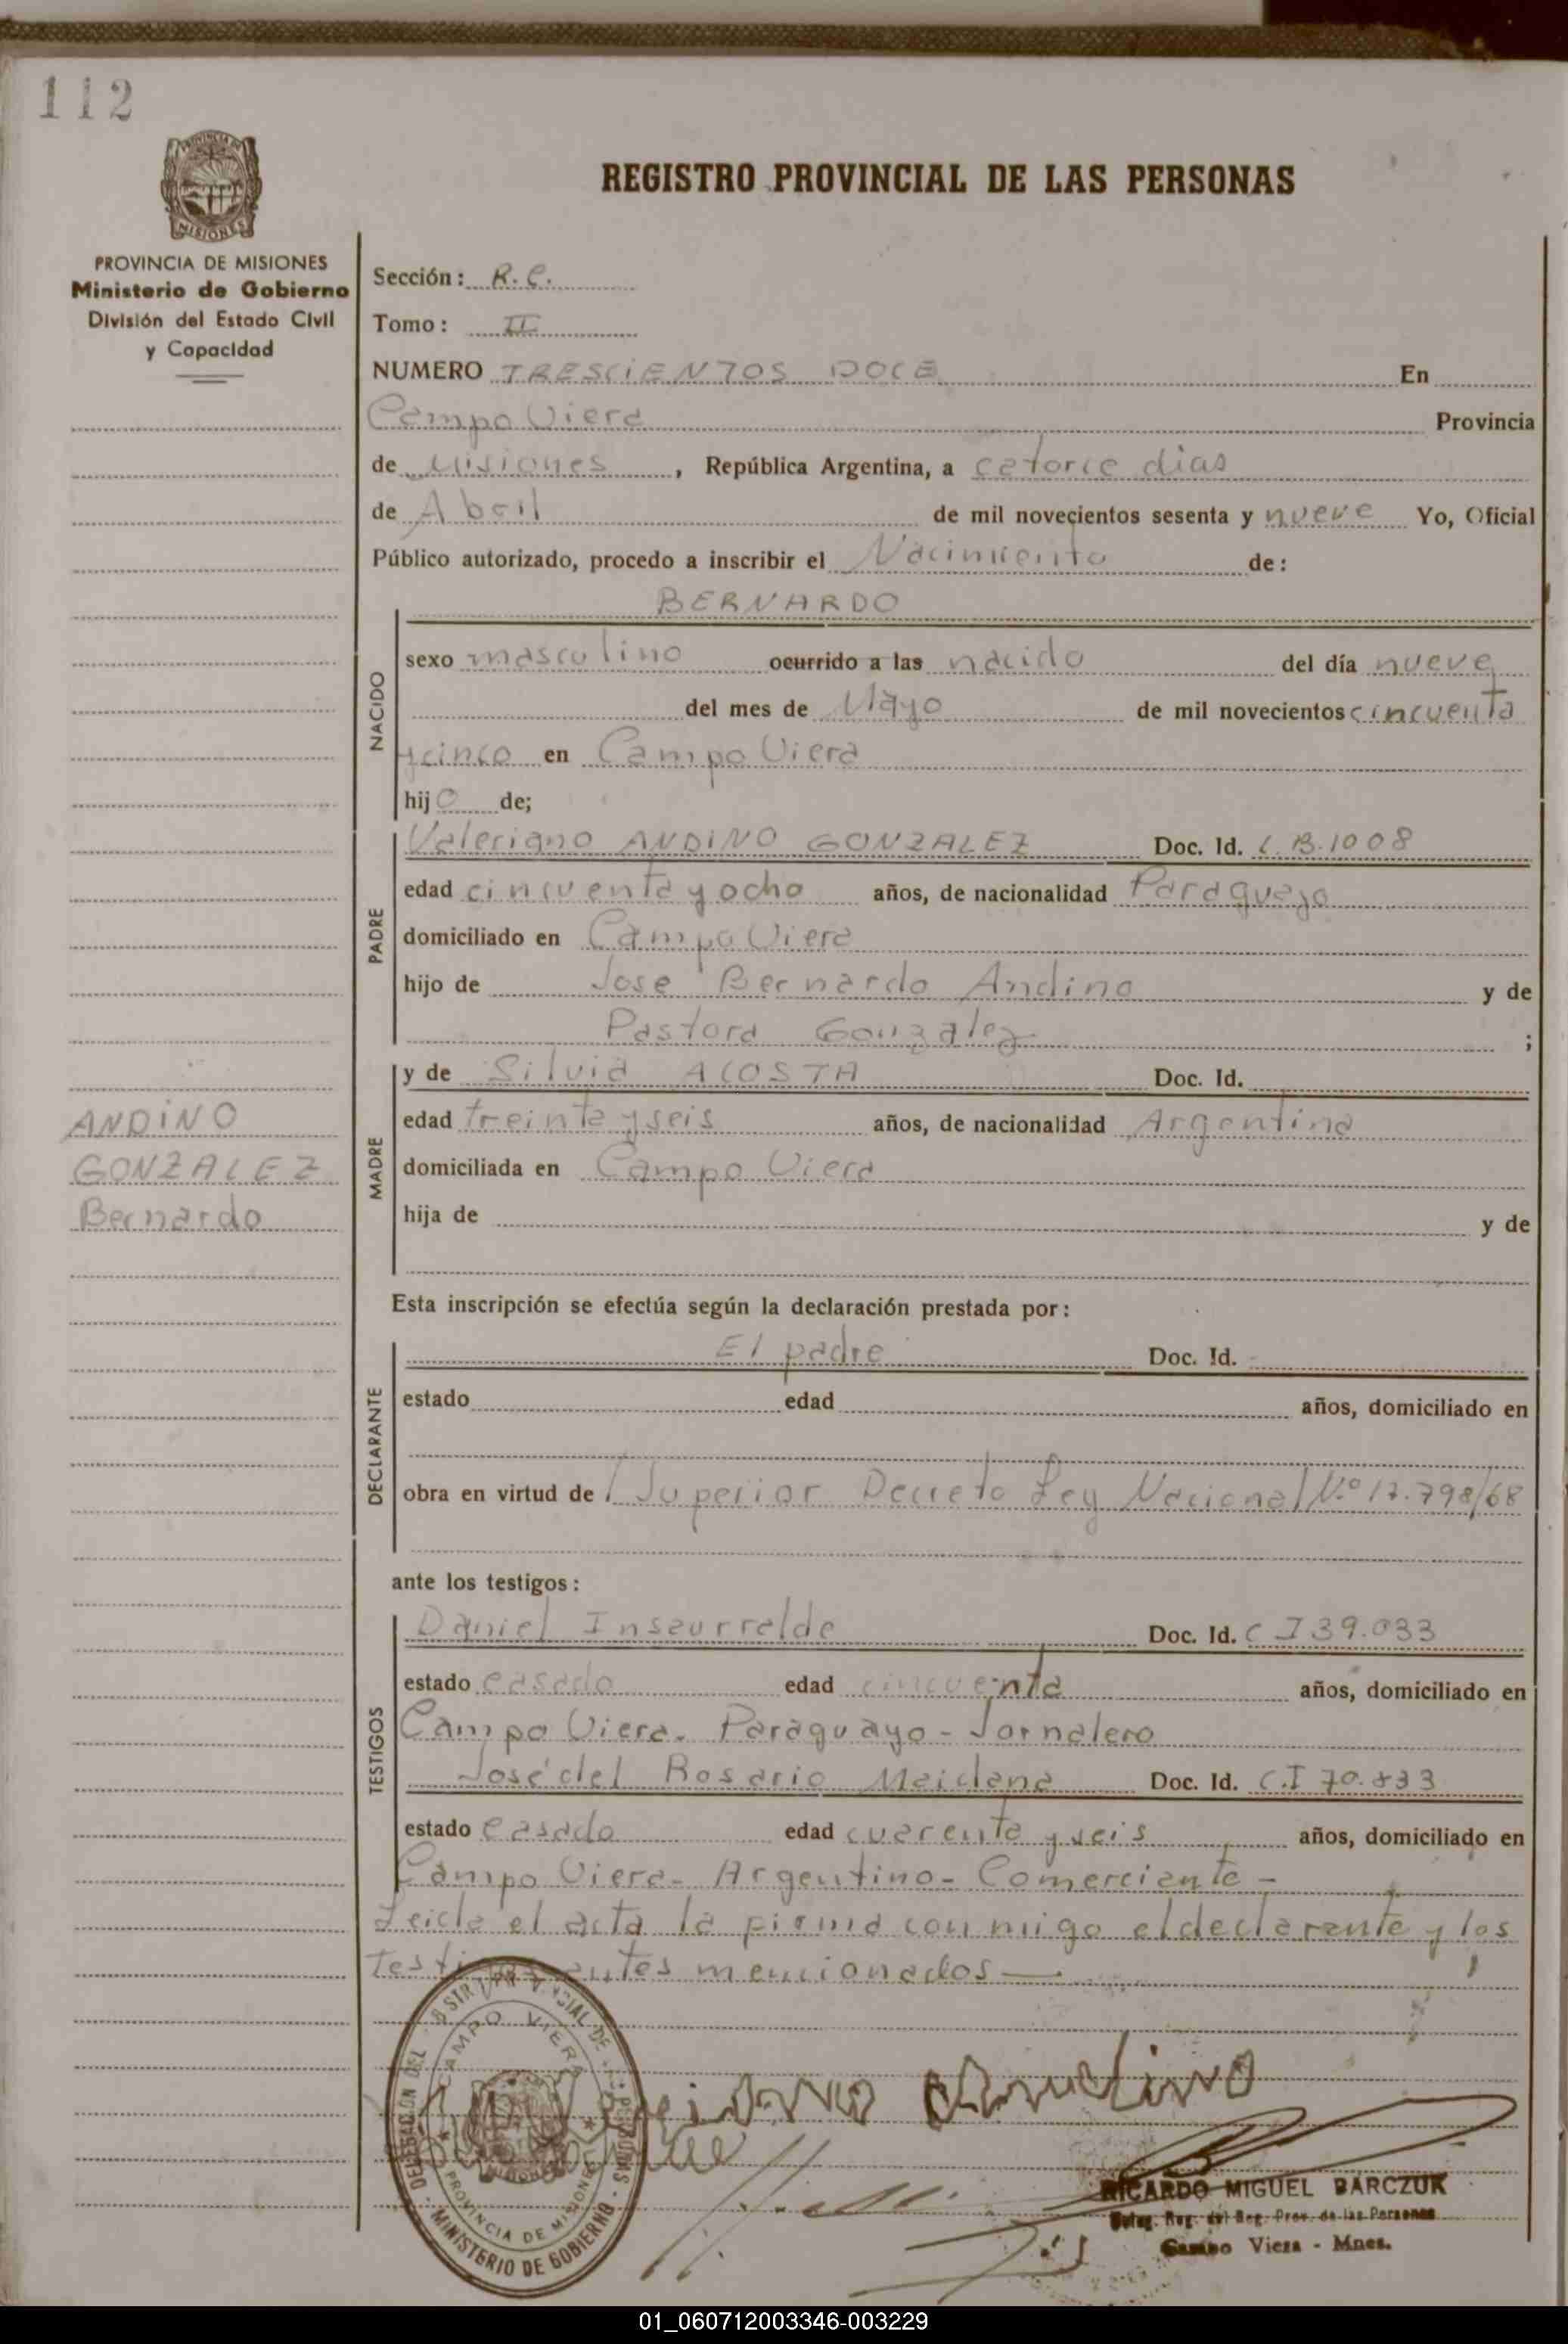 112
PROVINCIA DE MISIONES
Ministerio de Gobierno
División del Estado Civil
y Capacidad
REGISTRO PROVINCIAL DE LAS PERSONAS
Sección: R.C.
Tomo: II
NUMERO TRESCIENTOS DOCE En
Campo Viera Provincia
de Misiones, República Argentina, a catorce dias
de Abril de mil novecientos sesenta y nueve Yo, Oficial
Público autorizado, procedo a inscribir el Nacimiento de:
BERNARDO
NACIDO
sexo masculino ocurrido a las nacido del día nueve
del mes de Mayo de mil novecientos cincuenta
y cinco en Campo Viera
hijo de;
PADRE
Valeriano ANDINO GONZALEZ Doc. Id. C.B.1008
edad cincuenta y ocho años, de nacionalidad Paraguayo
domiciliado en Campo Viera
hijo de Jose Bernardo Andino y de
Pastora Gonzalez ;
MADRE
y de Silvia ACOSTA Doc. Id.
edad treinta y seis años, de nacionalidad Argentina
domiciliada en Campo Viera
hija de y de
ANDINO
GONZALEZ
Bernardo
Esta inscripción se efectúa según la declaración prestada por:
DECLARANTE
El padre Doc. Id.
estado edad años, domiciliado en
obra en virtud de / Superior Decreto Ley Nacional N.º 17.798/68
ante los testigos:
TESTIGOS
Daniel Insaurralde Doc. Id. C I 39.033
estado casado edad cincuenta años, domiciliado en
Campo Viera. Paraguayo - Jornalero
José del Rosario Maidana Doc. Id. C.I 70.833
estado casado edad cuarenta y seis años, domiciliado en
Campo Viera- Argentino- Comerciante -
Leida el acta la firma conmigo el declarante y los
mencionados —
DELEGACION DEL
CAMPO VIERA
PROVINCIA DE MISIONES
MINISTERIO DE GOBIERNO
RICARDO MIGUEL BARCZUK
Deleg. Reg. del Reg. Prov. de las Personas
Campo Viera - Mnes.
01_060712003346-003229